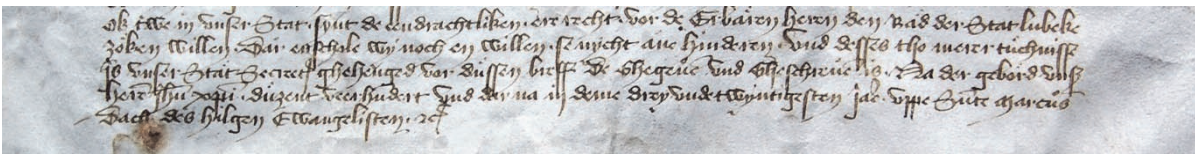 Ok twe in unser Stat · synt de eendrachtliken · ere recht · vor de Erbaren heren den Rad der Stat lubeke
zoken willen · Dar enschole wy noch en willen · se nycht ane hinderen · Und desses tho merer tuchnisse
is unser Stat Secret ghehenged vor dussen breff De Gheven und Ghescreven is · Na der gebord unß
heren Jhu xpi · duzent veerhundert und dar na in deme drey undetwyntigesten Jare · uppe Sunte Marcus
Dach des hilgen Ewangelisten · rc